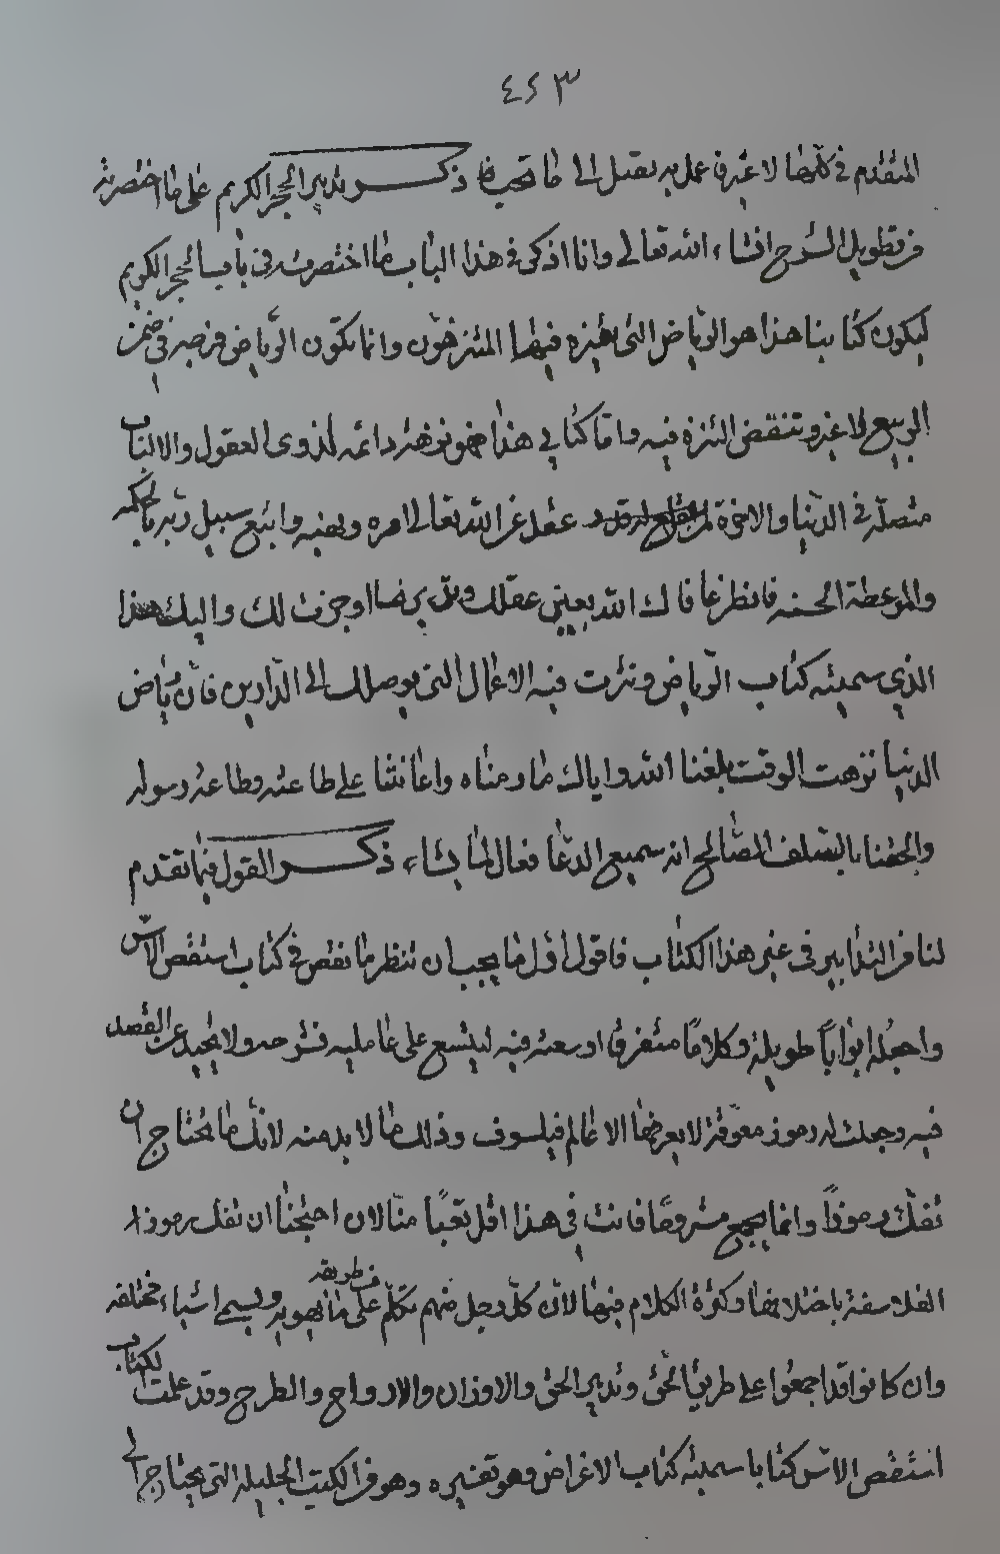 ٤٢٣
المتقدم في كلها لا غير فاعمل به تصل الى ما تحب ذكر تدبير الحجر الكريم على ما اختصرته
من تطويل الشرح انشاء الله تعالى وانا اذكر في هذا الباب ما اختصرته في باب الحجر الكريم
ليكون كتابنا هذا هو الرياض التى يتنزه فيها المتنزهون وانما تكون الرياض فرصة في ضمن
الربيع لا غير وتنقضى التنزه فيه واما كتابي هذا فهو نزهة دائمة لذوى العقول والالباب
متصلة في الدنيا والاخرة عقل عن الله تعالى امره ونهيه واتبع سبيل ربه بالحكمة
والموعظة الحسنة فانظر عافاك الله بعيني عقلك وتدبر ما اوجزت لك واليك هذا
الذي سميته كتاب الرياض ونثرت فيه الاعمال التى توصلك الى الدارين فان رياض
الدنيا نزهت الوقت بلغنا الله واياك ما رمناه واعاننا على طاعته وطاعة رسوله
والحقنا بالسلف الصالح انه سميع الدعا فعال لما يشاء ذكر القول فيما تقدم
لنا من التدابير في غير هذا الكتاب فاقول اول ما يجب ان تنظر ما نقص في كتاب استقص الاس
واجعله ابوابا طويلة وكلاما متفرقا اوسعته فيه ليتسع على عامليه شرحه ولا يحيد عن القصد
فيه وجعلت له رموز معوقة لا يعرفها الا عالم فيلسوف وذلك ما لا بد منه لانك ما تحتاج ان
تفك رموزا وانما يجمع مشروحا فانت في هذا اقل تعبا منا لان احتجنا ان نفك رموزا
الفلاسفة باختلافها وكثرة الكلام فيها لان كل رجل منهم تكلم على ما يهويه من طريقه ويسمى اشياء مختلفة
وان كانوا قد اجمعوا على طريق الحق وتدبير الحق والاوزان والارواح والطرح وقد عملت لكتاب
استقص الاس كتابا سميته كتاب الاغراض وهو تفسيره وهو من الكتب الجليلة التى يحتاج الى